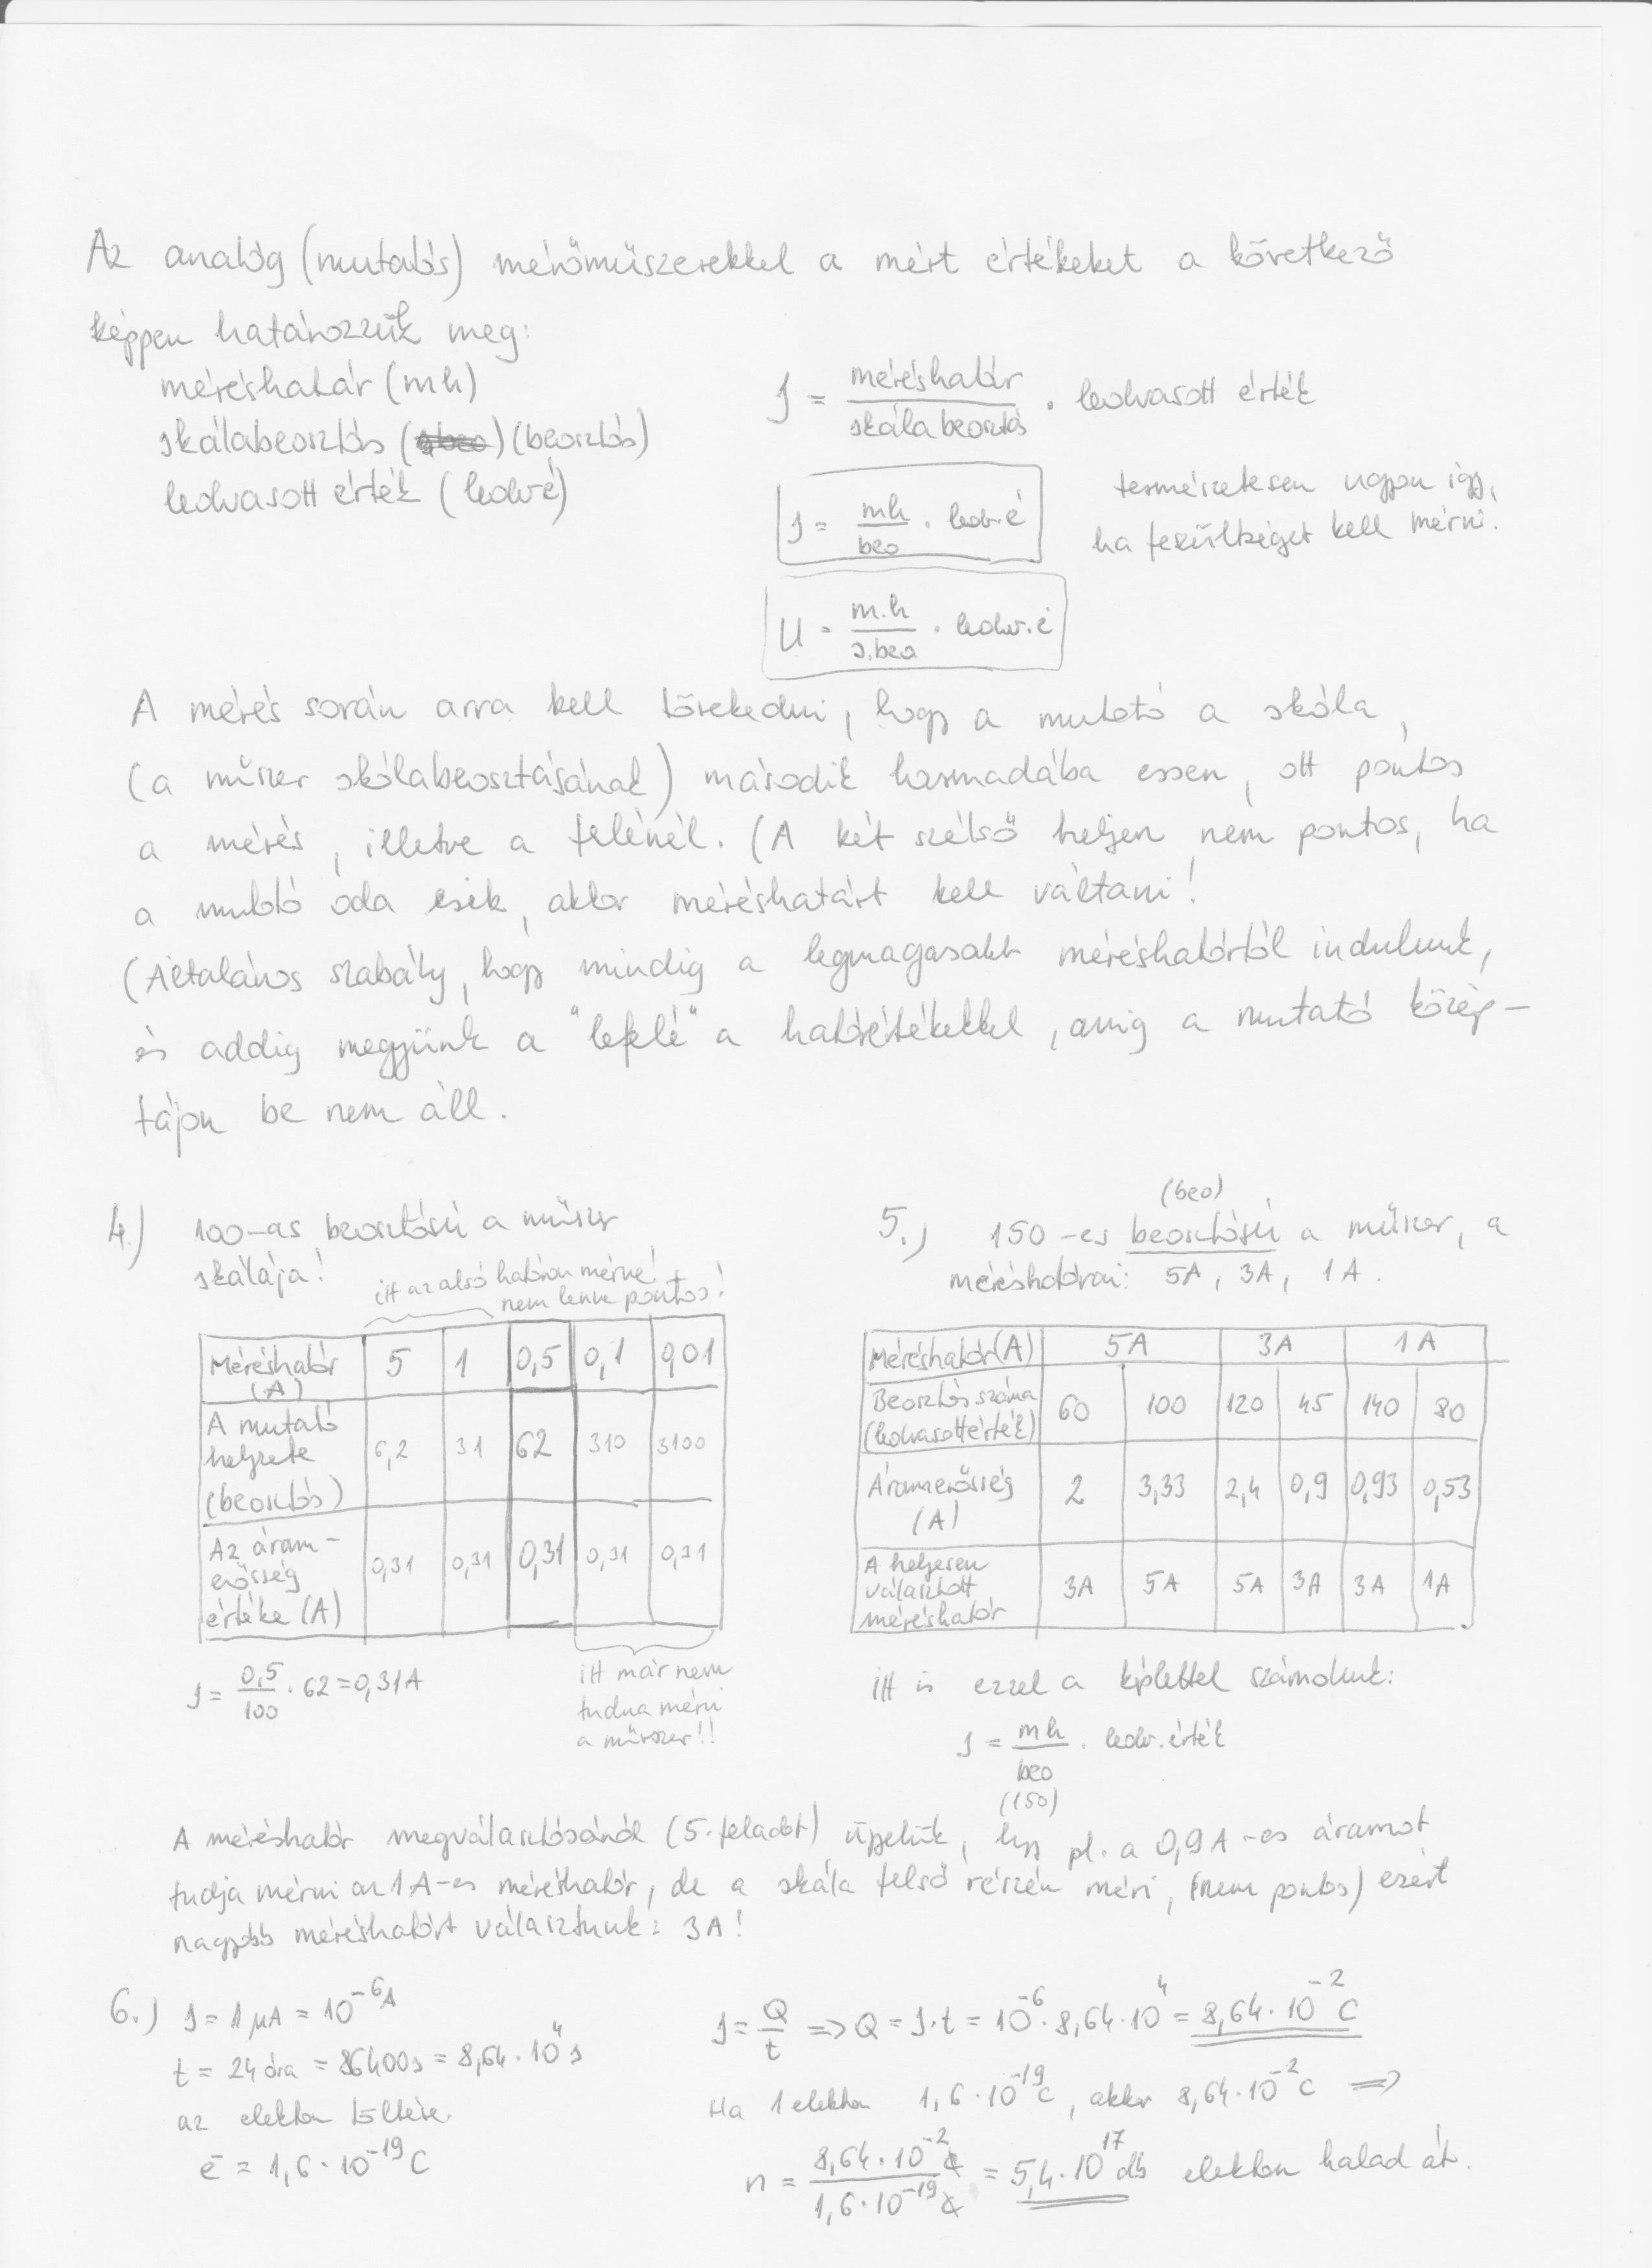 Az analóg (mutatós) mérőműszerekkel a mért értékeket a következő
képpen határozzuk meg:
méréshatár (mh)
skálabeosztás (sbeo) (beosztás)
leolvasott érték (leolv.é)
J = méréshatár / skálabeosztás · leolvasott érték
J = mh / beo · leolv.é
természetesen ugyan így,
ha feszültséget kell mérni.
U = m.h / s.beo · leolv.é
A mérés során arra kell törekedni, hogy a mutató a skála,
(a műszer skálabeosztásának) második harmadába essen, ott pontos
a mérés, illetve a felénél. (A két szélső helyen nem pontos, ha
a mutató oda esik, akkor méréshatárt kell váltani!
(Általános szabály, hogy mindig a legmagasabb méréshatártól indulunk,
és addig megyünk a "lefelé" a határértékekkel, amig a mutató közép-
tájon be nem áll.
4.) 100-as beosztású a műszer
skálája!
itt az alsó határon mérne!
nem lenne pontos!
Méréshatár (A) 5 1 0,5 0,1 0,01
A mutató helyzete (beosztás) 6,2 31 62 310 3100
Az áram-erősség értéke (A) 0,31 0,31 0,31 0,31 0,31
J = 0,5 / 100 · 62 = 0,31A
itt már nem
tudna mérni
a műszer!!
5.) 150-es beosztású (beo) a műszer, a
méréshatárai: 5A, 3A, 1A.
Méréshatár(A) 5A 3A 1A
Beosztás száma (leolvasott érték) 60 100 120 45 140 80
Áramerősség (A) 2 3,33 2,4 0,9 0,93 0,53
A helyesen választott méréshatár 3A 5A 5A 3A 3A 1A
itt is ezzel a képlettel számolunk:
J = mh / beo · leolv. érték
(150)
A méréshatár megválasztásánál (5. feladat) ügyelünk, hogy pl. a 0,9A-es áramot
tudja mérni az 1A-es méréshatár, de a skála felső részén méri, (nem pontos) ezért
nagyobb méréshatárt választunk: 3A!
6.) J = 1 μA = 10⁻⁶A
t = 24 óra = 86400s = 8,64 · 10⁴ s
az elektron töltése.
e⁻ = 1,6 · 10⁻¹⁹ C
J = Q / t => Q = J·t = 10⁻⁶ · 8,64 · 10⁴ = 8,64 · 10⁻² C
Ha 1 elektron 1,6 · 10⁻¹⁹C, akkor 8,64 · 10⁻² C =>
n = 8,64 · 10⁻² C / 1,6 · 10⁻¹⁹ C = 5,4 · 10¹⁷ db elektron halad át.